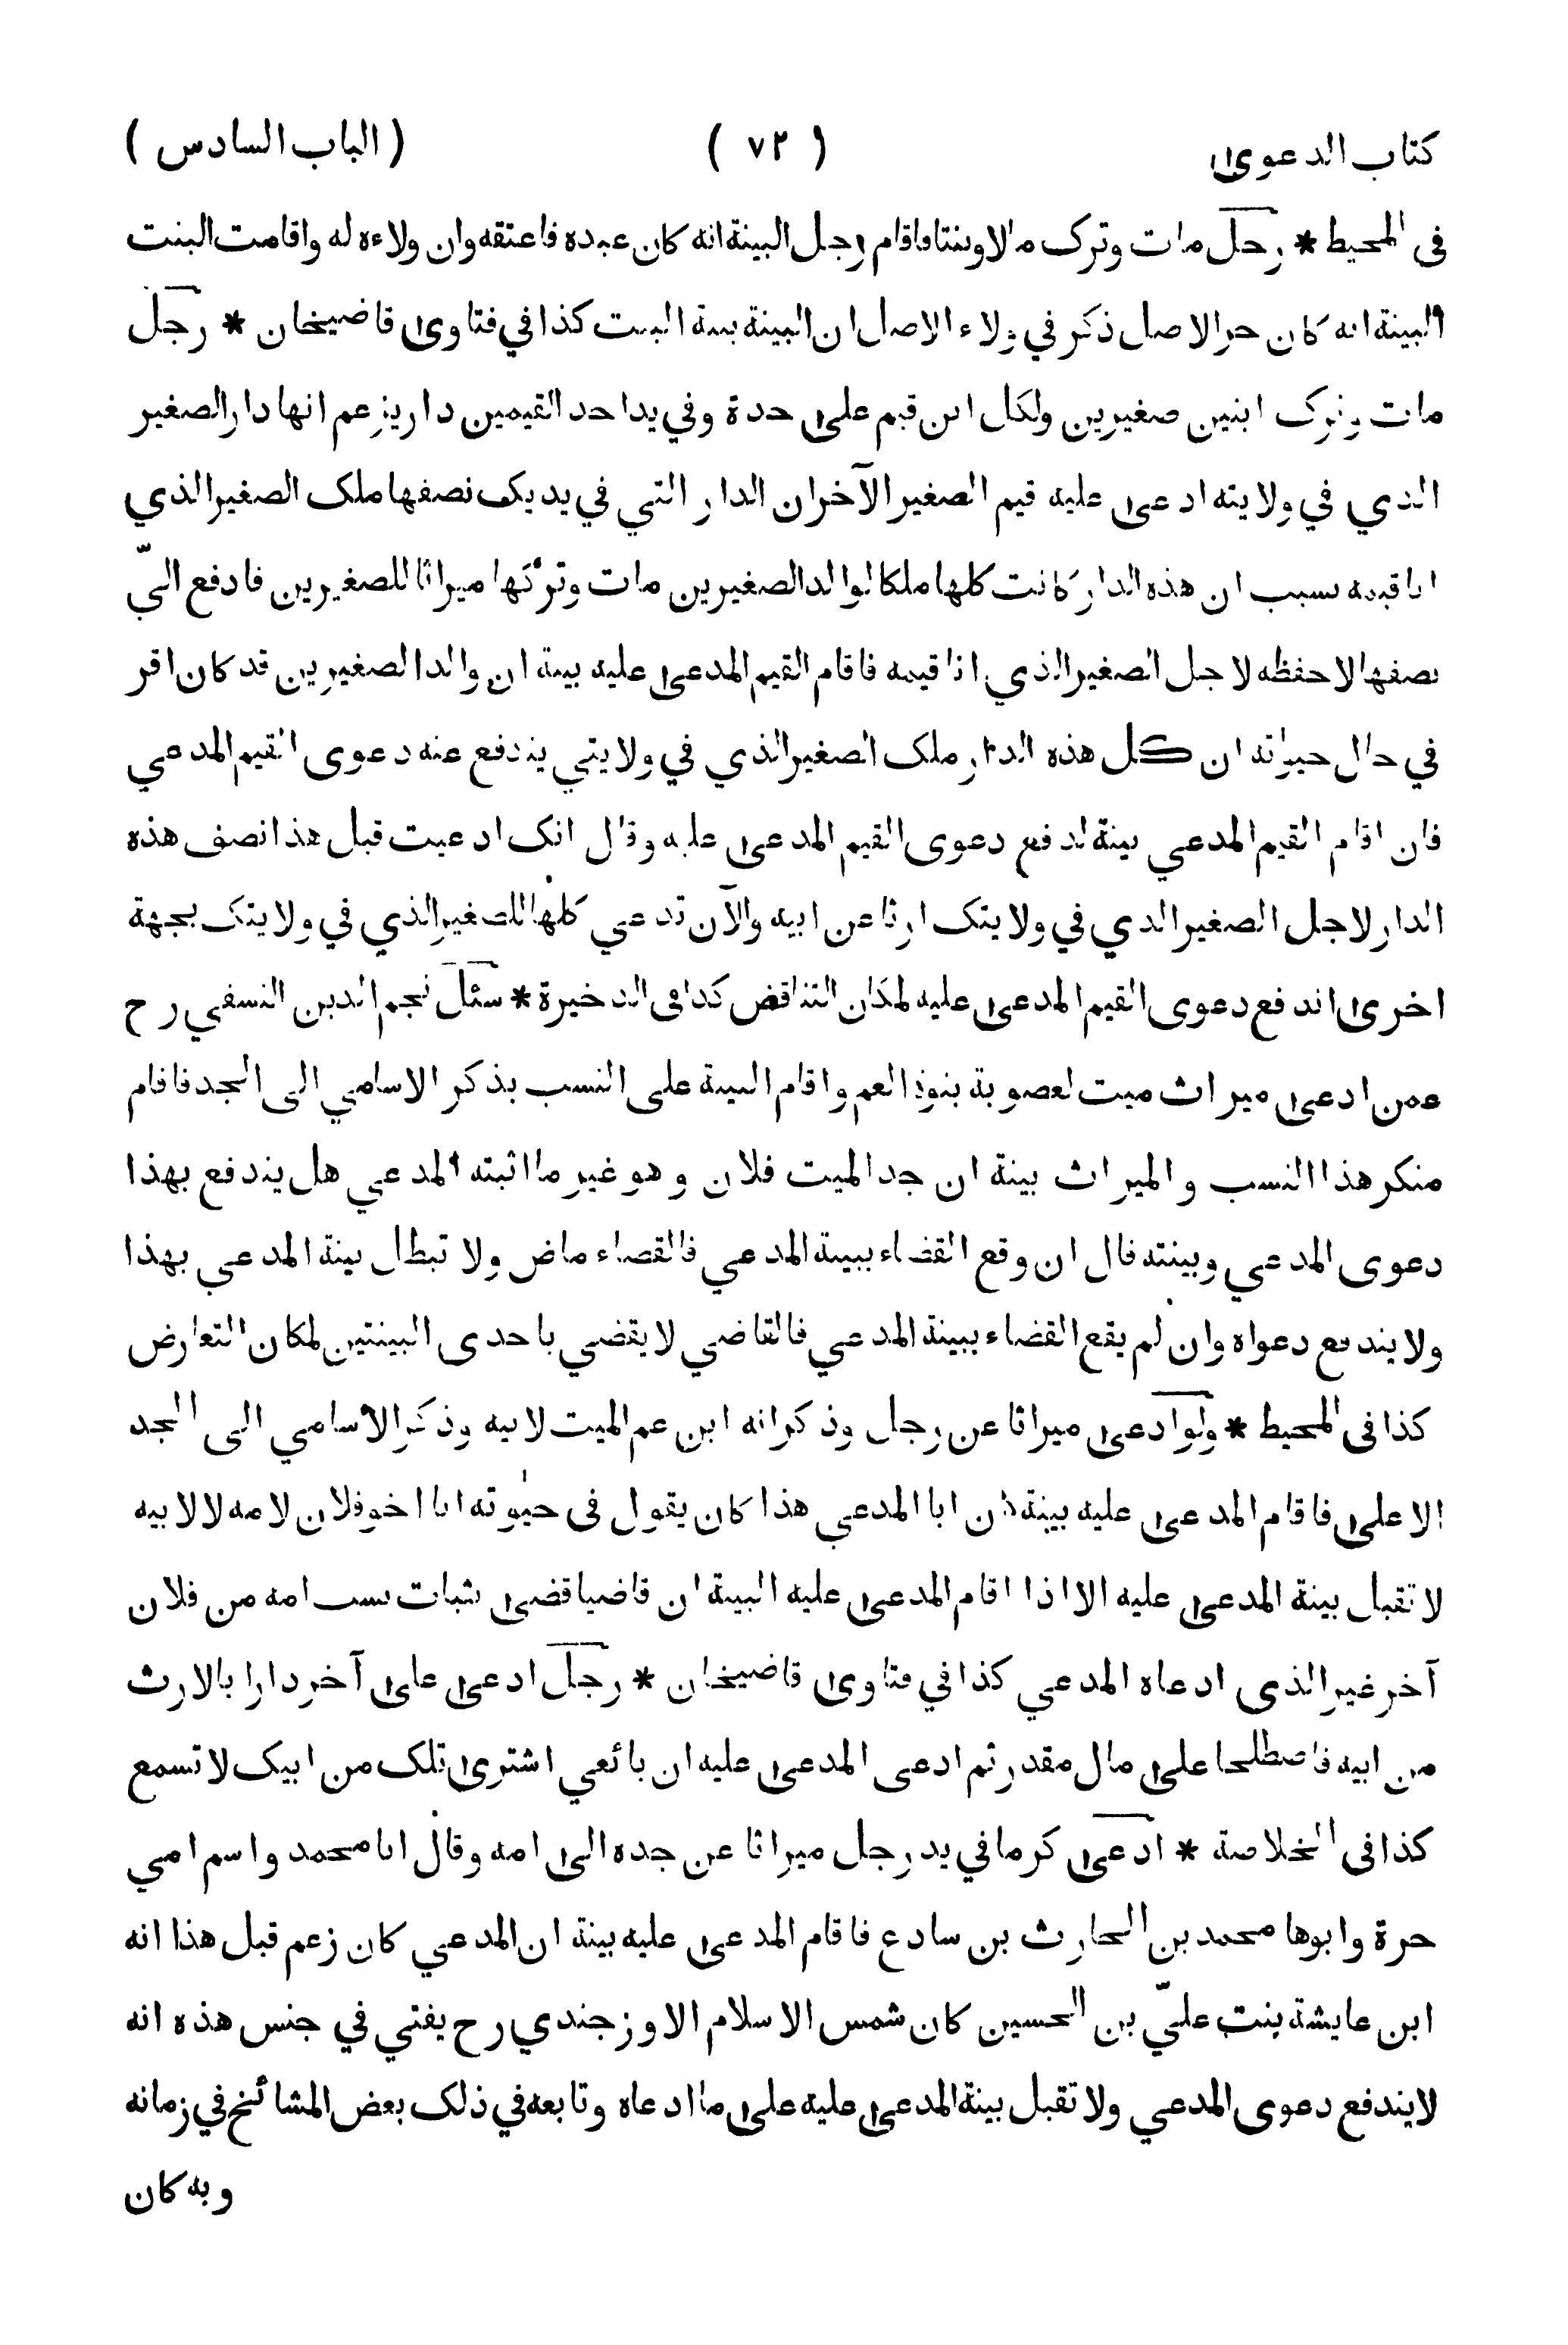 كتاب الدعوى ( ٧٢ ) ( الباب السادس )
فى المحيط * رجل مات وترك مالا وبنتا فاقام رجل البينة انه كان عبده فاعتقه وان ولاءه له واقامت البنت
البينة انه كان حر الاصل ذكر في ولاء الاصل ان البينة بينة البنت كذا في فتاوى قاضيخان * رجل
مات وترك ابنين صغيرين ولكل ابن قيم على حدة وفي يد احد القيمين دار يزعم انها دار الصغير
الذي في ولايته ادعى عليه قيم الصغير الآخر ان الدار التي في يديك نصفها ملك الصغير الذي
انا قيمه بسبب ان هذه الدار كانت كلها ملكا لوالد الصغيرين مات وتركها ميراثا للصغيرين فادفع اليّ
نصفها لاحفظه لاجل الصغير الذي انا قيمه فاقام القيم المدعى عليه بينة ان والد الصغيرين قد كان اقر
في حال حيوته ان كل هذه الدار ملك الصغير الذي في ولايتي يندفع عنه دعوى القيم المدعي
فان اقام القيم المدعي بينة لدفع دعوى القيم المدعى عليه وقال انك ادعيت قبل هذا نصف هذه
الدار لاجل الصغير الذي في ولايتك ارثا عن ابيه والآن تدعي كلها للصغير الذي في ولايتك بجهة
اخرى اندفع دعوى القيم المدعى عليه لمكان التناقض كذا فى الذخيرة * سئل نجم الدين النسفي رح
عمن ادعى ميراث ميت لعصوبة بنوة العم واقام البينة على النسب بذكر الاسامي الى الجد فاقام
منكر هذا النسب والميراث بينة ان جد الميت فلان وهو غير ما اثبته المدعي هل يندفع بهذا
دعوى المدعي وبينته قال ان وقع القضاء ببينة المدعي فالقضاء ماض ولا تبطل بينة المدعي بهذا
ولا يندفع دعواه وان لم يقع القضاء ببينة المدعي فالقاضي لا يقضي باحدى البينتين لمكان التعارض
كذا فى المحيط * ولو ادعى ميراثا عن رجل وذكر انه ابن عم الميت لابيه وذكر الاسامي الى الجد
الاعلى فاقام المدعى عليه بينة ان ابا المدعي هذا كان يقول فى حيوته انا اخو فلان لامه لا لابيه
لا تقبل بينة المدعى عليه الا اذا اقام المدعى عليه البينة ان قاضيا قضى بثبات نسب امه من فلان
آخر غير الذى ادعاه المدعي كذا في فتاوى قاضيخان * رجل ادعى على آخر دارا بالارث
من ابيه فاصطلحا على مال مقدر ثم ادعى المدعى عليه ان بائعي اشترى تلك من ابيك لا تسمع
كذا فى الخلاصة * ادعى كرما في يد رجل ميراثا عن جده الى امه وقال انا محمد واسم امي
حرة وابوها محمد بن الحارث بن سادع فاقام المدعى عليه بينة ان المدعي كان زعم قبل هذا انه
ابن عايشة بنت عليّ بن الحسين كان شمس الاسلام الاوزجندي رح يفتي في جنس هذه انه
لا يندفع دعوى المدعي ولا تقبل بينة المدعى عليه على ما ادعاه وتابعه في ذلك بعض المشائخ في زمانه
وبه كان